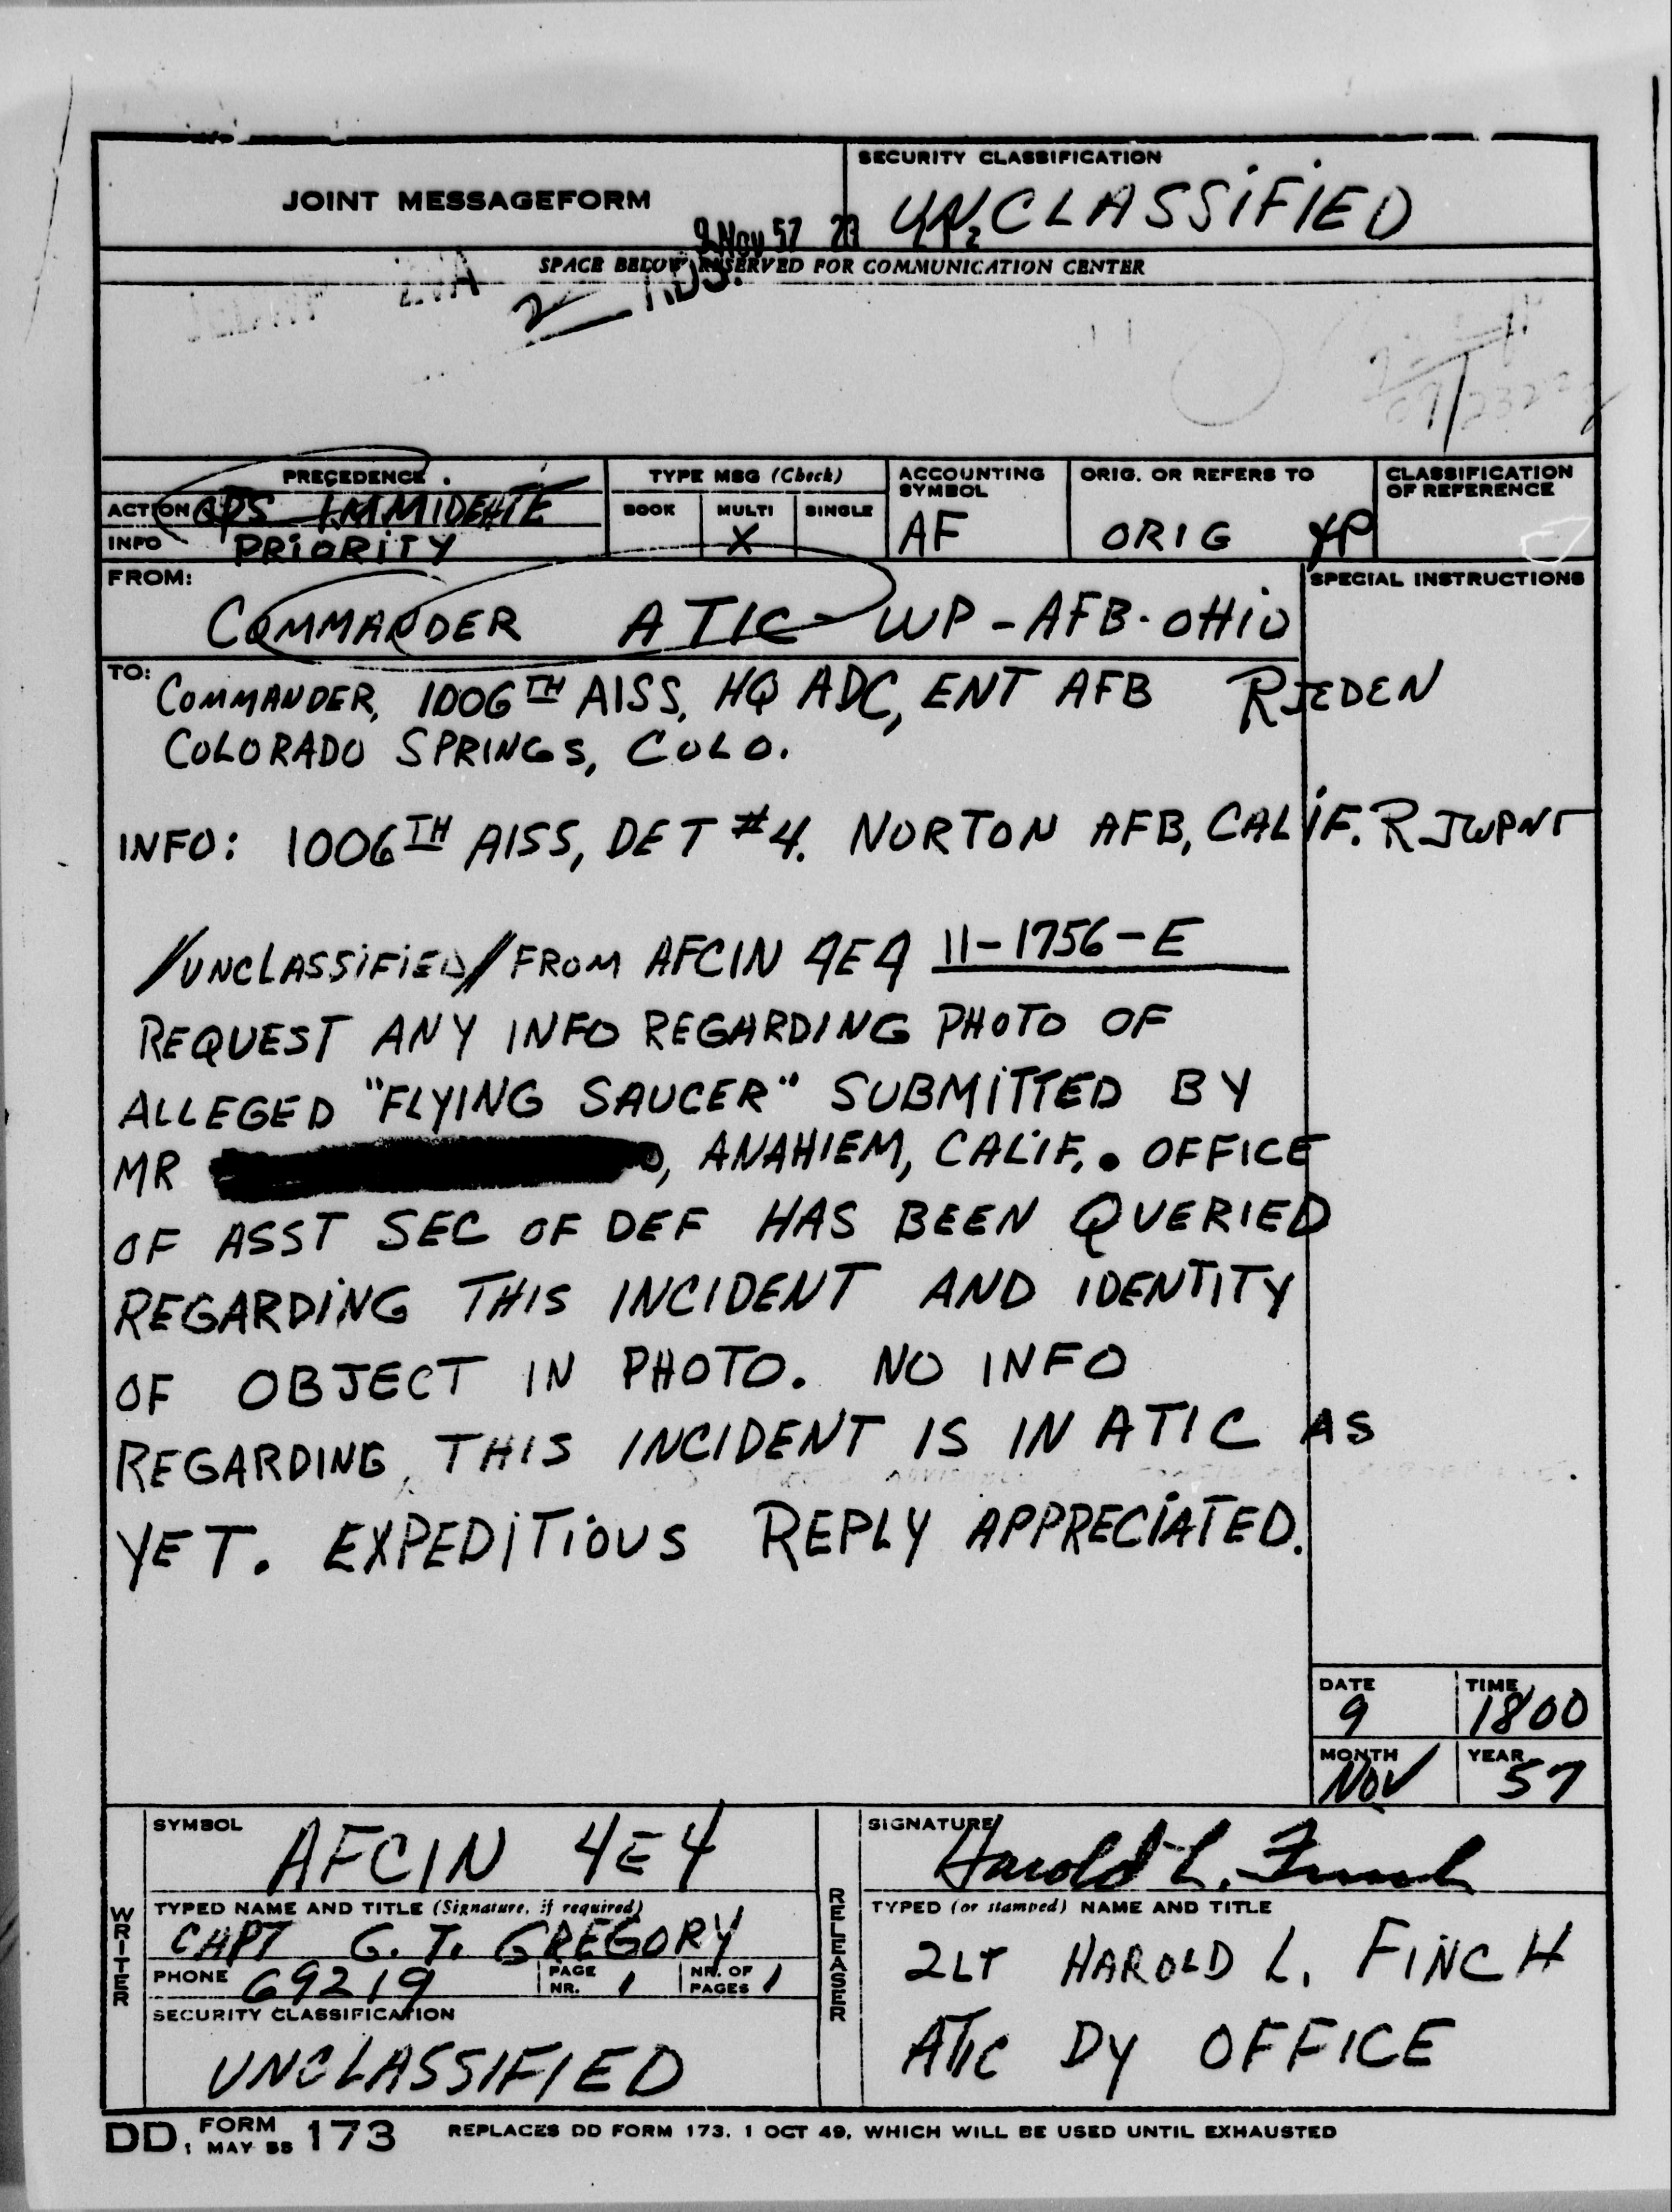 SECURITY CLASSIFICATION
JOINT MESSAGEFORM
UNCLASSIFIED
9 Nov 57
SPACE BELOW RESERVED FOR COMMUNICATION CENTER
PRECEDENCE
TYPE MSG (Check)
ACCOUNTING SYMBOL
ORIG. OR REFERS TO
CLASSIFICATION OF REFERENCE
ACTION OPS IMMIDEATE
BOOK MULTI SINGLE
INFO PRIORITY
X
AF
ORIG
FROM:
SPECIAL INSTRUCTIONS
COMMANDER ATIC WP-AFB-OHIO
TO:
COMMANDER, 1006TH AISS, HQ ADC, ENT AFB RJEDEN
COLORADO SPRINGS, COLO.
INFO: 1006TH AISS, DET #4. NORTON AFB, CALIF. RJWPNT
/UNCLASSIFIED// FROM AFCIN 4E4 11-1756-E
REQUEST ANY INFO REGARDING PHOTO OF
ALLEGED "FLYING SAUCER" SUBMITTED BY
MR , ANAHIEM, CALIF.. OFFICE
OF ASST SEC OF DEF HAS BEEN QUERIED
REGARDING THIS INCIDENT AND IDENTITY
OF OBJECT IN PHOTO. NO INFO
REGARDING THIS INCIDENT IS IN ATIC AS
YET. EXPEDITIOUS REPLY APPRECIATED.
DATE TIME
9 1800
MONTH YEAR
NOV 57
SYMBOL
AFCIN 4E4
SIGNATURE
Harold L. Finch
WRITER
TYPED NAME AND TITLE (Signature, if required)
CAPT G. T. GREGORY
PHONE 69219 PAGE NR. 1 NR. OF PAGES 1
SECURITY CLASSIFICATION
UNCLASSIFIED
RELEASER
TYPED (or stamped) NAME AND TITLE
2LT HAROLD L. FINCH
ATIC DY OFFICE
DD, FORM 1 MAY 55 173 REPLACES DD FORM 173, 1 OCT 49, WHICH WILL BE USED UNTIL EXHAUSTED